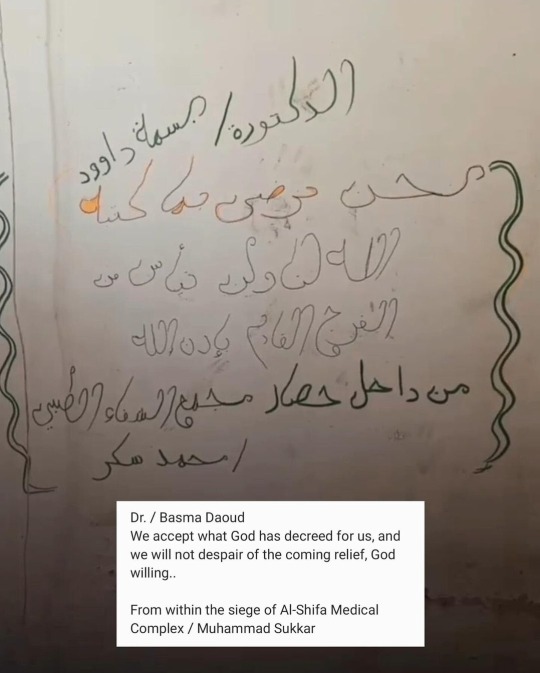 الدكتورة/ بسمة داوود
نحن نرضى بما كتبه
الله لنا ولن نيأس من
الفرج القادم بإذن الله
من داخل حصار مجمع الشفاء الطبي
/محمد سكر
Dr. / Basma Daoud
We accept what God has decreed for us, and
we will not despair of the coming relief, God
willing..
From within the siege of Al-Shifa Medical
Complex / Muhammad Sukkar